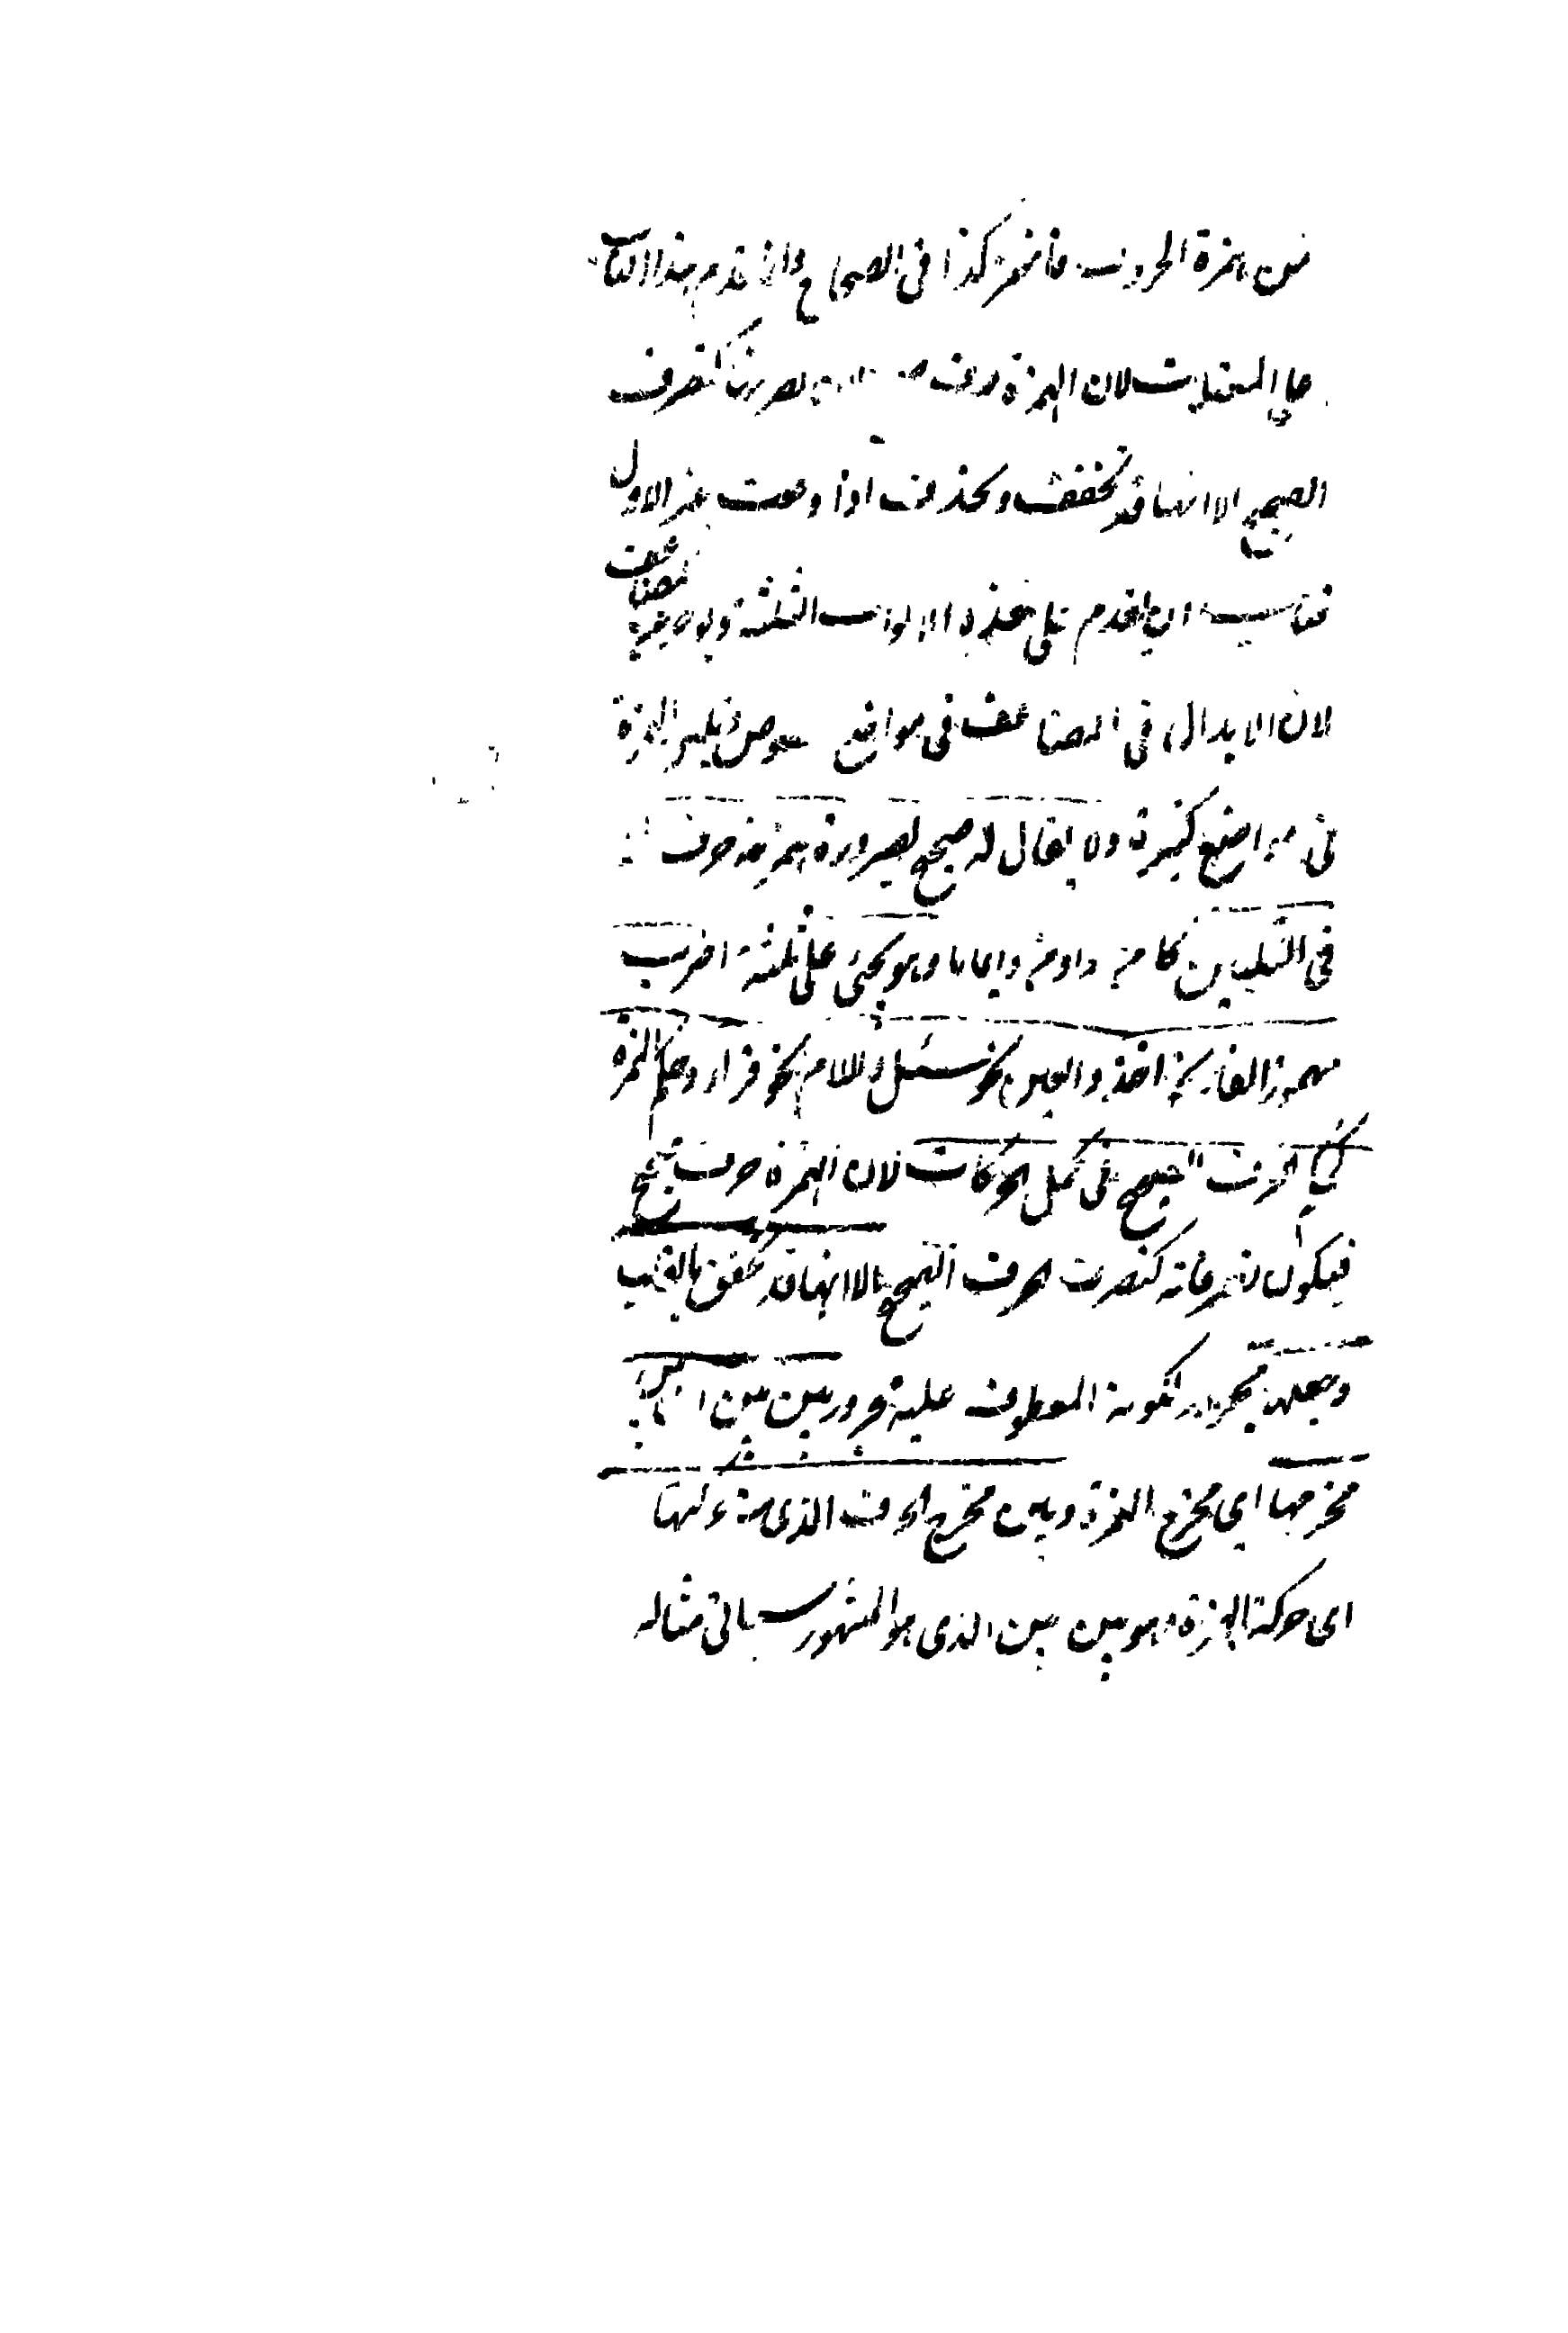 من همزة الحروف فانهمز كذا فى الصحاح وانما قدم هذا الباب
على المعتلات لان الهمزة حرف تصرفها كتصرف
الصحيح الا انها قد تخفف وتحذف اذا وقعت غير الاول
فناسب ان يقدم على هذه الابواب الثلثة المضاعف
لان الابدال فى المضاعف فى مواضع وتليين الهمزة
فى مواضع كثيرة ولا يقال له صحيح لصيرورة همزته حرف
فى التليين كآمن واومن وايمانا وهو يجئ على ثلثة اضرب
مهموز الفاء نحو اخذ والعين نحو سئل واللام نحو قرأ وحكم الهمزة
كحكم الحرف الصحيح فى تحمل الحركات لان الهمزة حرف صحيح
فيكون تصرفاته كتصرف الحرف الصحيح الا انها قد تخفف بالقلب
وجعلها مجرور لكونه المعطوف عليه مجرور بين بين اى بين
مخرجها اى مخرج الهمزة وبين مخرج الحرف الذى منه حركتها
اى حركة الهمزة وهو بين بين الذى هو المشهور سيأتى مثاله